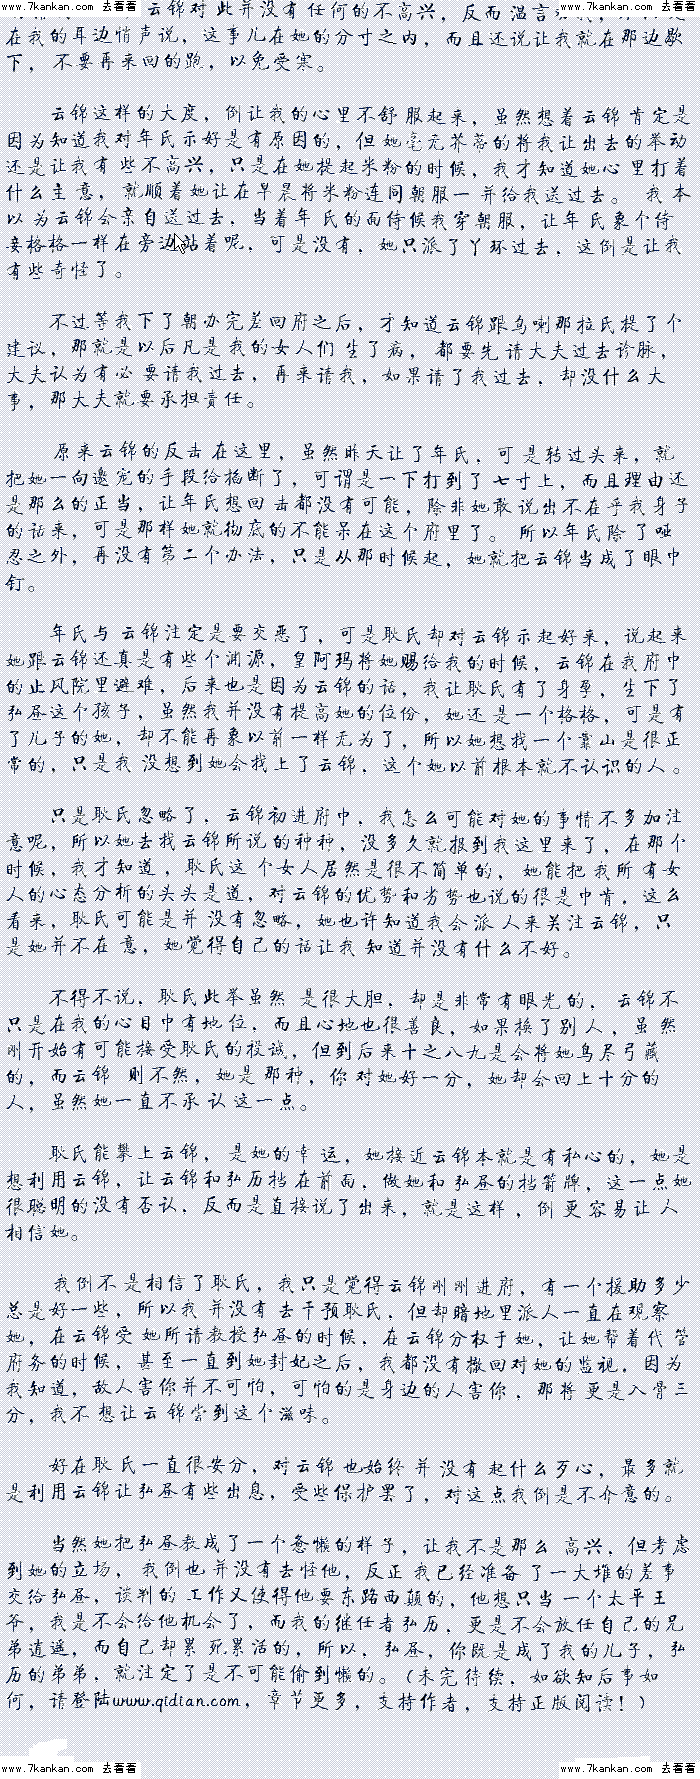 www.7kankan.com 去看看 www.7kankan.com 去看看
云锦对此并没有任何的不高兴，反而温言
在我的耳边悄声说，这事儿在她的分寸之内，而且还说让我就在那边歇
下，不要再来回的跑，以免受寒。
云锦这样的大度，倒让我的心里不舒服起来，虽然想着云锦肯定是
因为知道我对年氏示好是有原因的，但她毫无芥蒂的将我让出去的举动
还是让我有些不高兴，只是在她提起米粉的时候，我才知道她心里打着
什么主意，就顺着她让在早晨将米粉连同朝服一并给我送过去。我本
以为云锦会亲自送过去，当着年氏的面侍候我穿朝服，让年氏象个侍
妾格格一样在旁边站着呢，可是没有，她只派了丫环过去，这倒是让我
有些奇怪了。
不过等我下了朝办完差回府之后，才知道云锦跟乌喇那拉氏提了个
建议，那就是以后凡是我的女人们生了病，都要先请大夫过去诊脉，
大夫认为有必要请我过去，再来请我，如果请了我过去，却没什么大
事，那大夫就要承担责任。
原来云锦的反击在这里，虽然昨天让了年氏，可是转过头来，就
把她一向邀宠的手段给掐断了，可谓是一下打到了七寸上，而且理由还
是那么的正当，让年氏想回击都没有可能，除非她敢说出不在乎我身子
的话来，可是那样她就彻底的不能呆在这个府里了。所以年氏除了哑
忍之外，再没有第二个办法，只是从那时候起，她就把云锦当成了眼中
钉。
年氏与云锦注定是要交恶了，可是耿氏却对云锦示起好来，说起来
她跟云锦还真是有些个渊源，皇阿玛将她赐给我的时候，云锦在我府中
的止风院里避难，后来也是因为云锦的话，我让耿氏有了身孕，生下了
弘昼这个孩子，虽然我并没有提高她的位份，她还是一个格格，可是有
了儿子的她，却不能再象以前一样无为了，所以她想找一个靠山是很正
常的，只是我没想到她会找上了云锦，这个她以前根本就不认识的人。
只是耿氏忽略了，云锦初进府中，我怎么可能对她的事情不多加注
意呢，所以她去找云锦所说的种种，没多久就报到我这里来了，在那个
时候，我才知道，耿氏这个女人居然是很不简单的，她能把我所有女
人的心态分析的头头是道，对云锦的优势和劣势也说的很是中肯，这么
看来，耿氏可能是并没有忽略，她也许知道我会派人来关注云锦，只
是她并不在意，她觉得自己的话让我知道并没有什么不好。
不得不说，耿氏此举虽然是很大胆，却是非常有眼光的，云锦不
只是在我的心目中有地位，而且心地也很善良，如果换了别人，虽然
刚开始有可能接受耿氏的投诚，但到后来十之八九是会将她鸟尽弓藏
的，而云锦则不然，她是那种，你对她好一分，她却会回上十分的
人，虽然她一直不承认这一点。
耿氏能攀上云锦，是她的幸运，她接近云锦本就是有私心的，她是
想利用云锦，让云锦和弘历挡在前面，做她和弘昼的挡箭牌，这一点她
很聪明的没有否认，反而是直接说了出来，就是这样，倒更容易让人
相信她。
我倒不是相信了耿氏，我只是觉得云锦刚刚进府，有一个援助多少
总是好一些，所以我并没有去干预耿氏，但却暗地里派人一直在观察
她，在云锦受她所请教授弘昼的时候，在云锦分权于她，让她帮着代管
府务的时候，甚至一直到她封妃之后，我都没有撤回对她的监视，因为
我知道，敌人害你并不可怕，可怕的是身边的人害你，那将更是入骨三
分，我不想让云锦尝到这个滋味。
好在耿氏一直很安分，对云锦也始终并没有起什么歹心，最多就
是利用云锦让弘昼有些出息，受些保护罢了，对这点我倒是不介意的。
当然她把弘昼教成了一个惫懒的样子，让我不是那么高兴，但考虑
到她的立场，我倒也并没有去怪他，反正我已经准备了一大堆的差事
交给弘昼，谈判的工作又使得他要东跑西颠的，他想只当一个太平王
爷，我是不会给他机会了，而我的继任者弘历，更是不会放任自己的兄
弟逍遥，而自己却累死累活的，所以，弘昼，你既是成了我的儿子，弘
历的弟弟，就注定了是不可能偷到懒的。（未完待续，如欲知后事如
何，请登陆www.qidian.com，章节更多，支持作者，支持正版阅读！）
www.7kankan.com 去看看 www.7kankan.com 去看看